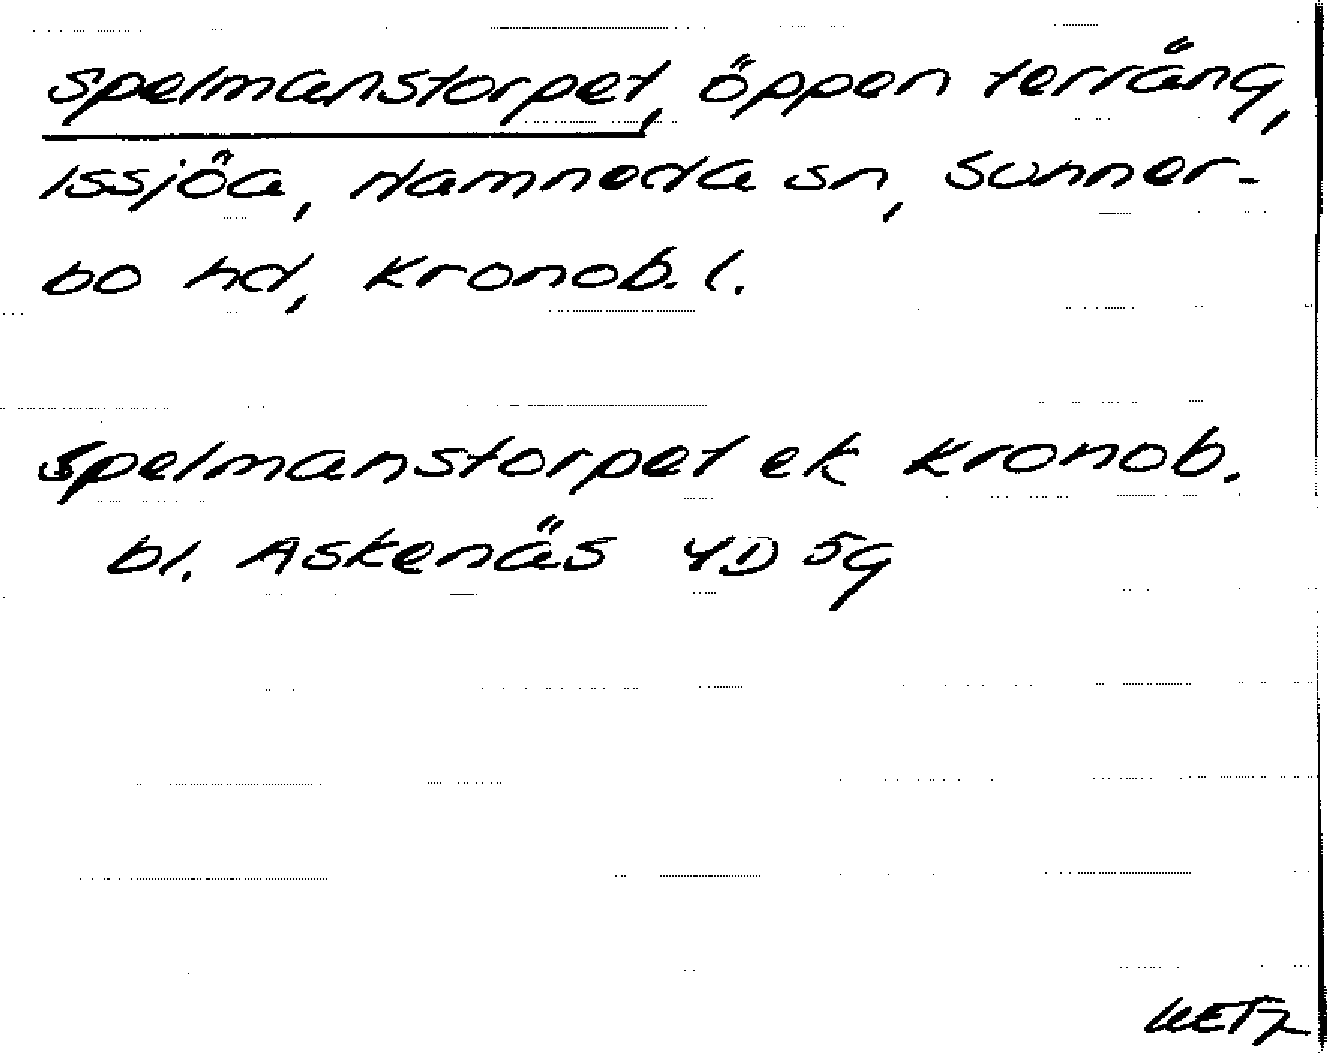 Spelmanstorpet, öppen terräng,
Issjöa, Hamneda sn, Sunner-
bo hd, Kronob. l.
Spelmanstorpet ek Kronob.
bl. Askenäs 4D 5g